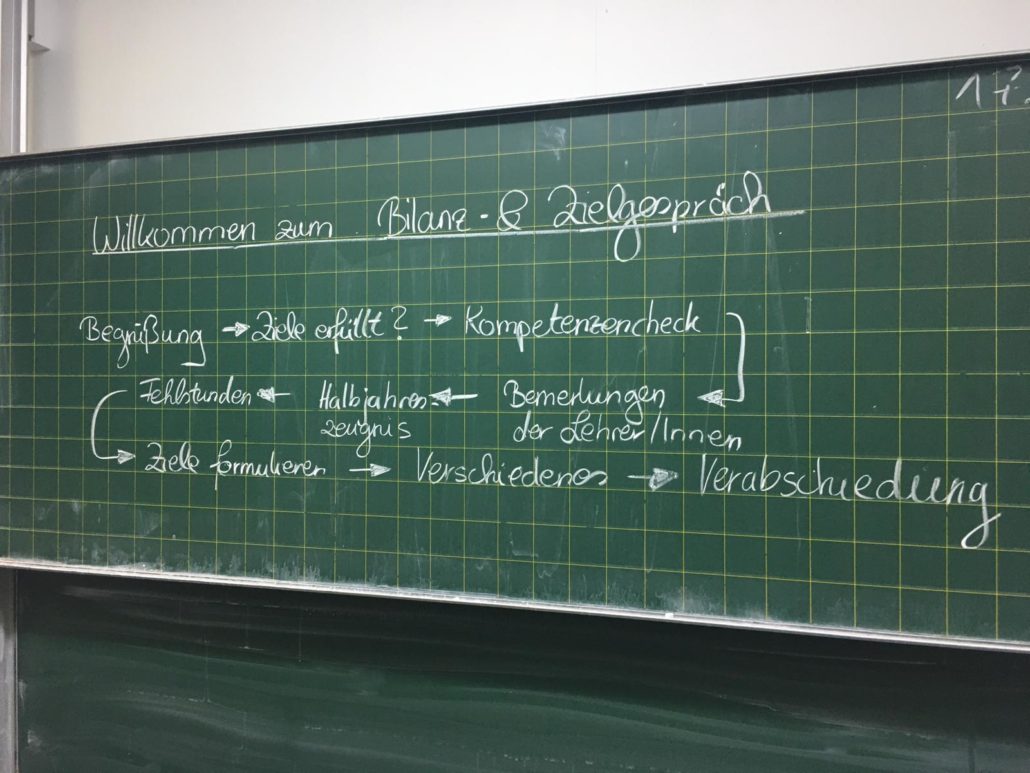 17.
Willkommen zum Bilanz- & Zielgespräch
Begrüßung → Ziele erfüllt? → Kompetenzencheck
Fehlstunden ← Halbjahres ← Bemerkungen
zeugnis der Lehrer/Innen
Ziele formulieren → Verschiedenes → Verabschiedung